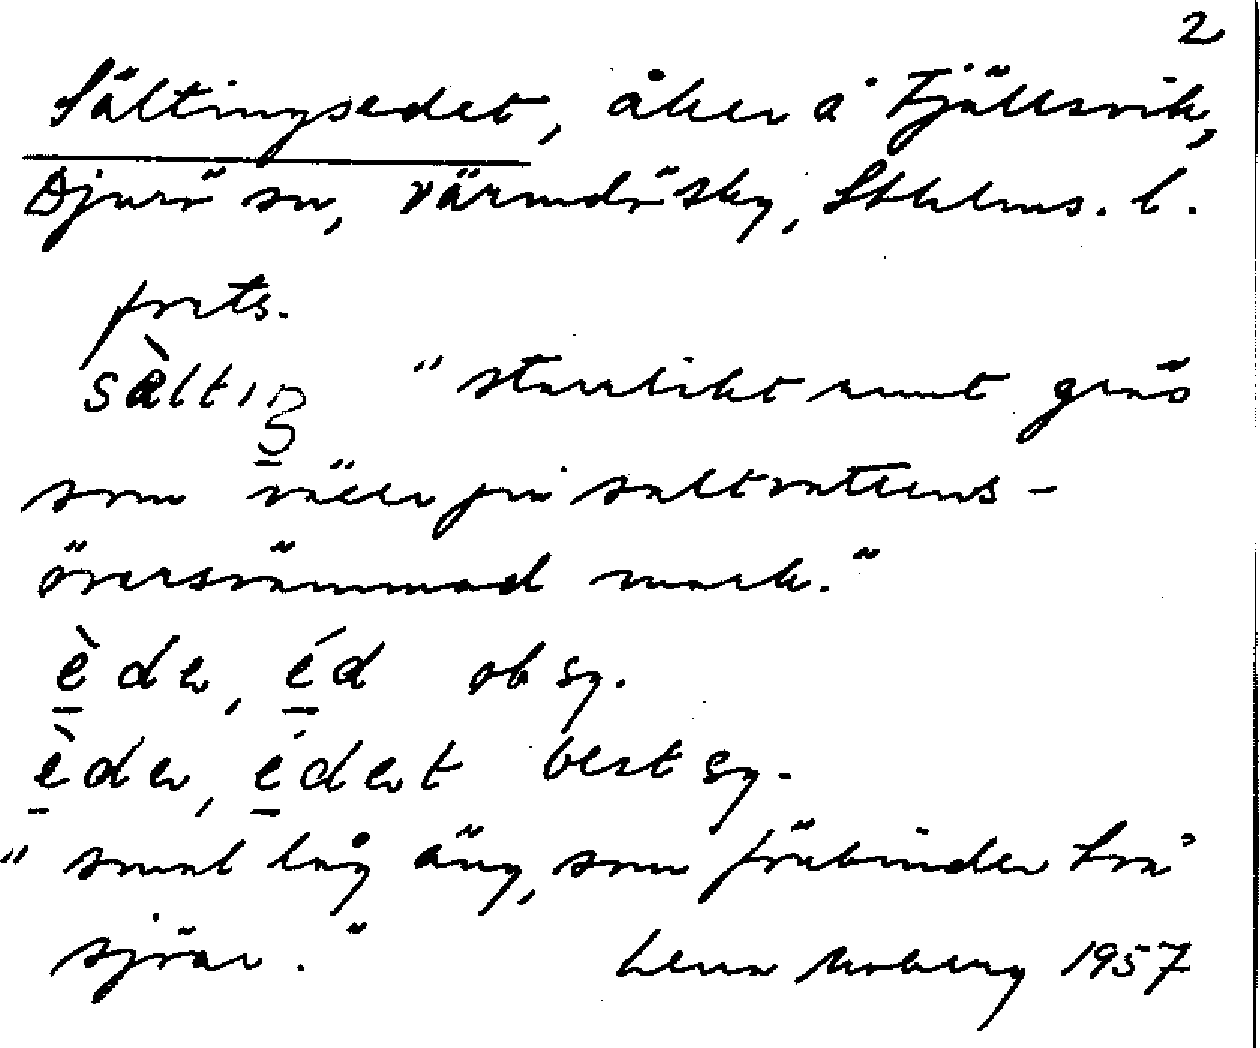 2
Sältingsedet, åker å Fjällsvik,
Djurö sn, Värmdö skg, Sthlms. l.
forts.
sæ̀ltıŋ "starrlikt runt gräs
som växer på saltvattens-
översvämmad mark."
èder, éd ob sg.
èder, édert best sg.
"smal låg äng, som förbinder två
sjöar."
Lena Moberg 1957